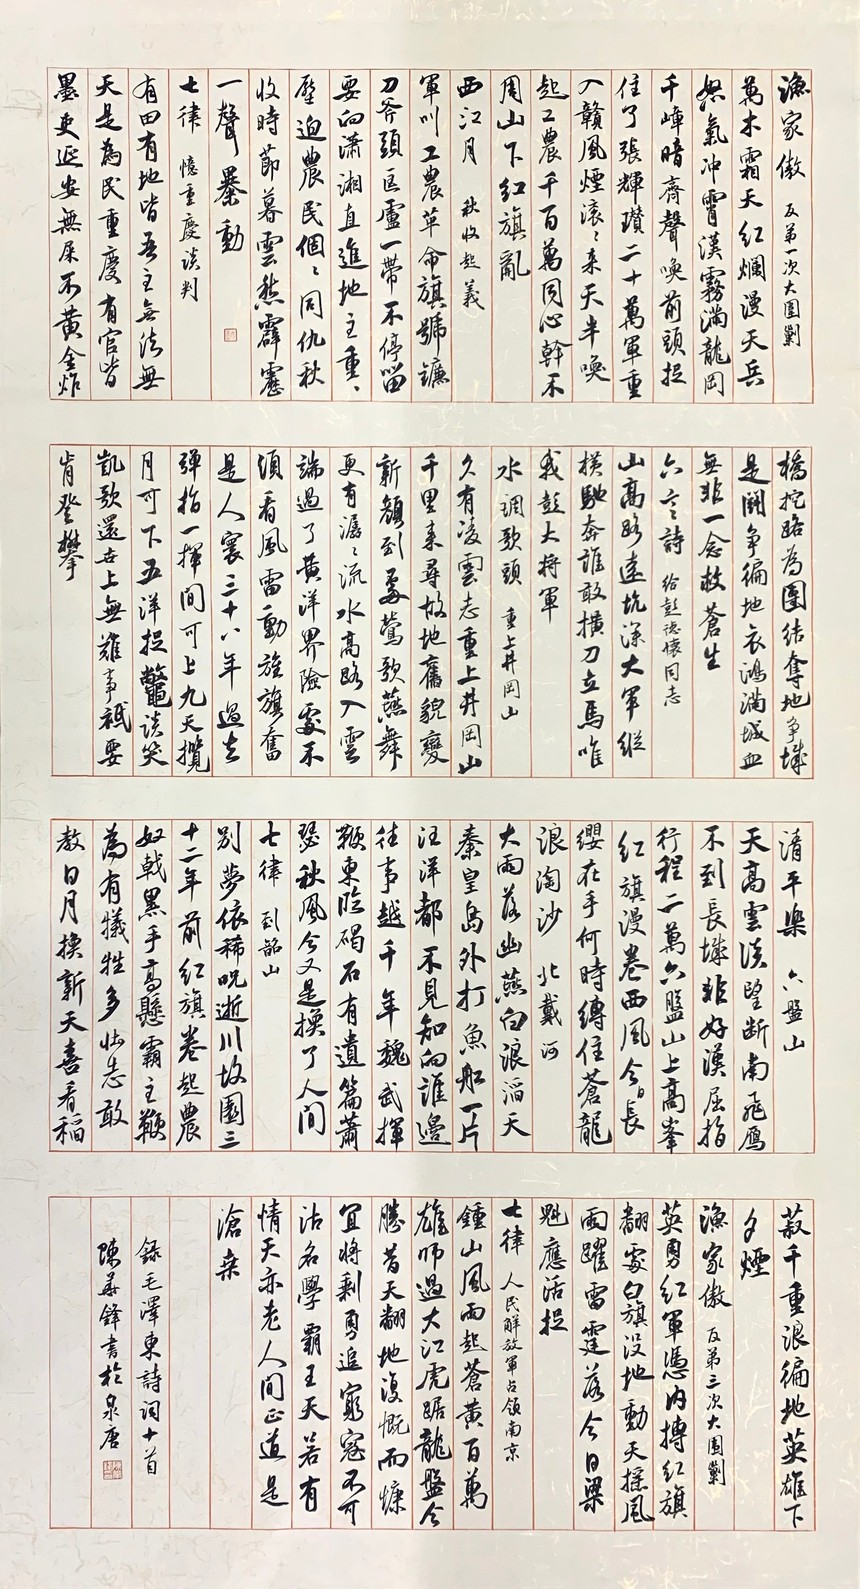 漁家傲 反第一次大圍剿
萬木霜天紅爛漫天兵
怒氣冲霄漢霧滿龍岡
千嶂暗齊聲喚前頭捉
住了張輝瓚二十萬軍重
入贛風煙滾〻来天半喚
起工農千百萬同心幹不
周山下紅旗亂
西江月 秋收起義
軍叫工農革命旗號鐮
刀斧頭匡廬一帶不停留
要向瀟湘直進地主重〻
壓迫農民個〻同仇秋
收時節暮雲愁霹靂
一聲暴動
七律 憶重慶談判
有田有地皆吾主無法無
天是為民重慶有官皆
墨吏延安無屎不黄金炸
橋挖路為團結奪地争城
是鬭争徧地哀鴻滿城血
無非一念救蒼生
六言詩 給彭德懷同志
山高路遠坑深大軍縱
横馳奔誰敢横刀立馬唯
我彭大将軍
水調歌頭 重上井岡山
久有凌雲志重上井岡山
千里来尋故地舊貌變
新顏到處鶯歌燕舞
更有潺〻流水高路入雲
端過了黄洋界險處不
須看風雷動旌旗奮
是人寰三十八年過去
彈指一揮間可上九天攬
月可下五洋捉鼈談笑
凱歌還世上無難事祇要
肯登攀
清平樂 六盤山
天高雲淡望断南飛雁
不到長城非好漢屈指
行程二萬六盤山上高峯
紅旗漫卷西風今日長
纓在手何時縛住蒼龍
浪淘沙 北戴河
大雨落幽燕白浪滔天
秦皇島外打魚船一片
汪洋都不見知向誰邊
往事越千年魏武揮
鞭東臨碣石有遺篇蕭
瑟秋風今又是換了人間
七律 到韶山
别夢依稀咒逝川故園三
十二年前紅旗卷起農
奴戟黑手高懸霸主鞭
為有犠牲多壮志敢
教日月換新天喜看稲
菽千重浪徧地英雄下
夕煙
漁家傲 反第三次大圍剿
英勇紅軍憑内搏紅旗
翻處白旗没地動天摇風
雨躍雷霆落今日梁
魁應活捉
七律 人民解放軍占領南京
鍾山風雨起蒼黄百萬
雄師過大江虎踞龍盤今
勝昔天翻地復慨而慷
宜將剩勇追窮寇不可
沽名學霸王天若有
情天亦老人間正道是
滄桒
録毛澤東詩詞十首
陳華鋒書於泉唐